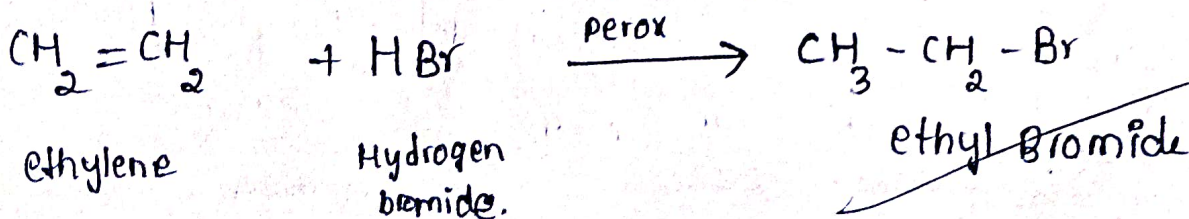 perox
CH2 = CH2 + HBr ⟶ CH3 - CH2 - Br
ethylene Hydrogen bromide. ethyl Bromide